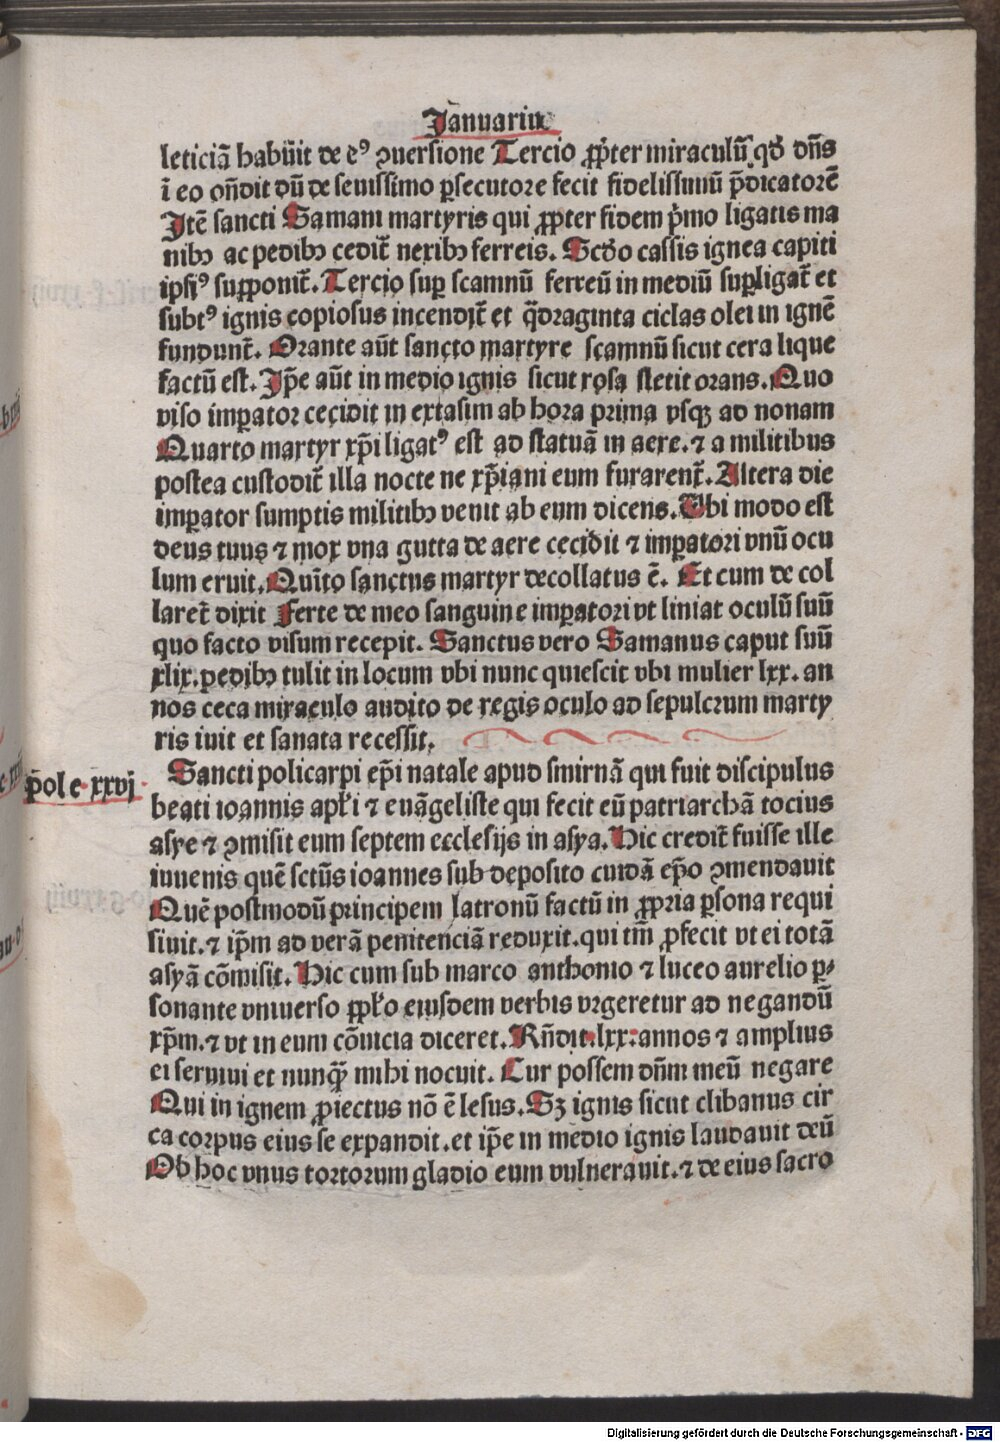 Januarius
leticiā habuit de eꝰ ꝯuersione Tercio ꝓpter miraculū qđ dn̄s
ī eo on̄dit dū de seuissimo ꝑsecutore fecit fidelissimū p̄dicatorē
Itē sancti Samani martyris qui ꝓpter fidem p̄mo ligatis ma
nibꝫ ac pedibꝫ cedit̄ nexibꝫ ferreis. Scđo cassis ignea capiti
ipsiꝰ supponit̄. Tercio suꝑ scamnū ferreū in mediū suꝑligat̄ et
subtꝰ ignis copiosus incendit̄ et q̄draginta ciclas olei in ignē
fundunt̄. Orante aūt sancto martyre scamnū sicut cera lique
factū est. Ip̄e aūt in medio ignis sicut rosa stetit orans. Quo
viso imꝑator cecidit in extasim ab hora prima vsqꝫ ad nonam
Quarto martyr xp̄i ligatꝰ est ad statuā in aere. ⁊ a militibus
postea custodit̄ illa nocte ne xp̄iani eum furarent̄. Altera die
imꝑator sumptis militibꝫ venit ab eum dicens. Vbi modo est
deus tuus ⁊ mox vna gutta de aere cecidit ⁊ imꝑatori vnū ocu
lum eruit. Quīto sanctus martyr decollatus ē. Et cum de col
laret̄ dixit Ferte de meo sanguine imꝑatori vt liniat oculū suū
quo facto visum recepit. Sanctus vero Samanus caput suū
xlix. pedibꝫ tulit in locum vbi nunc quiescit vbi mulier lxx. an
nos ceca miraculo audito de regis oculo ad sepulcrum marty
ris iuit et sanata recessit.
p̄ol e xxvj
Sancti policarpi ep̄i natale apud smirnā qui fuit discipulus
beati ioannis apl̄i ⁊ euāgeliste qui fecit eū patriarchā tocius
asye ⁊ ꝯmisit eum septem ecclesijs in asya. Hic credit̄ fuisse ille
iuuenis quē sctūs ioannes sub deposito cuidā ep̄o ꝯmendauit
Quē postmodū principem latronū factū in ꝓpria ꝑsona requi
siuit. ⁊ ip̄m ad verā penitenciā reduxit. qui tm̄ ꝓfecit vt ei totā
asyā cōmisit. Hic cum sub marco anthonio ⁊ luceo aurelio ꝑ⸗
sonante vniuerso ꝓpl̄o eiusdem verbis vrgeretur ad negandū
xp̄m. ⁊ vt in eum cōuicia diceret. Rn̄dit. lxx. annos ⁊ amplius
ei seruiui et nunqꝫ̄ mihi nocuit. Cur possem dn̄m meū negare
Qui in ignem ꝓiectus nō ē lesus. Sꝫ ignis sicut clibanus cir
ca corpus eius se expandit. et ip̄e in medio ignis laudauit deū
Ob hoc vnus tortorum gladio eum vulnerauit. ⁊ de eius sacro
Digitalisierung gefördert durch die Deutsche Forschungsgemeinschaft - DFG